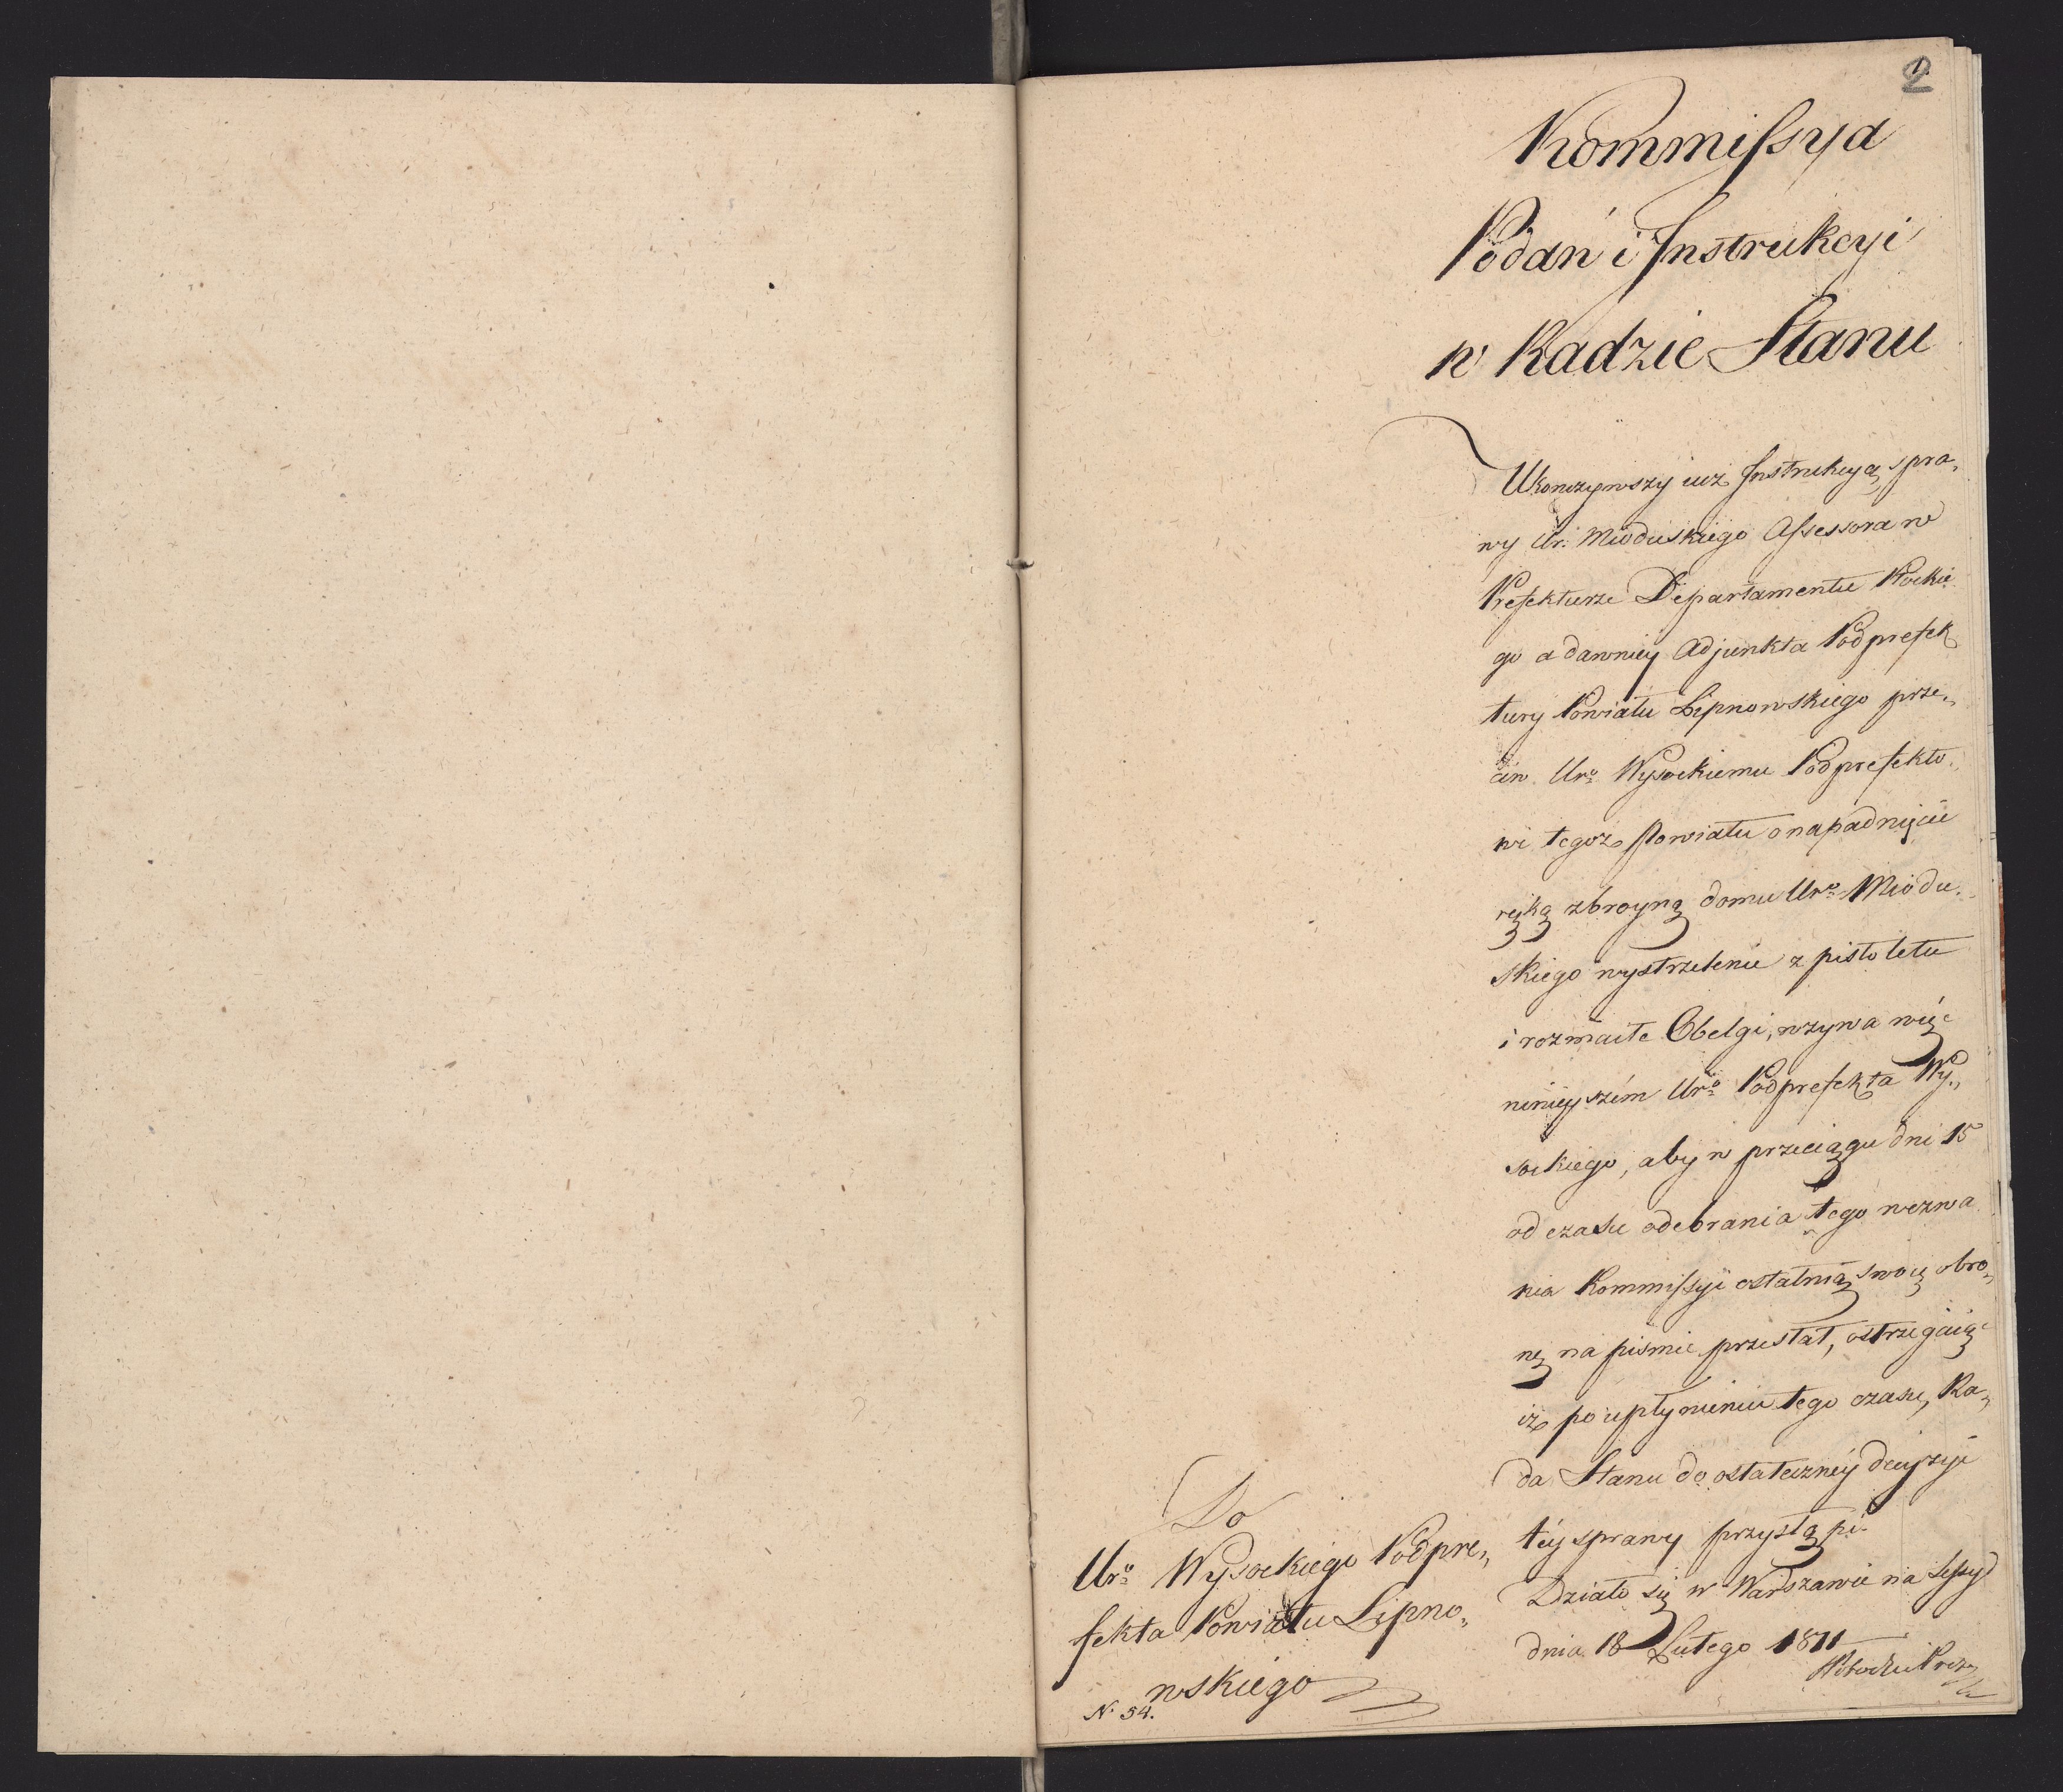 2
Kommissya
Podań i Instrukcyi
w Radzie Stanu
Ukonczywszy iuż Instrukcyą spra„
wy Ur: Mioduskiego Assessora w
Prefekturze Departamentu Płockie
go a dawniey Adjunkta Podprefek
tury Powiatu Lipnowskiego prze„
ciw Uro Wysockiemu Podprefekto„
wi tegoż Powiatu o napadnięcie
ręką zbroyną domu Uro Miodu„
skiego wystrzelenie z pistoletu
i rozmaite Obelgi, wzywa więc
ninieyszém Uro Podprefekta Wy„
sockiego, aby w przeciągu dni 15
od czasu odebrania tego wezwa
nia Kommissyi ostatnią swoię obro„
nę na piśmie przesłał, ostrzegaiąc
iż po upłynieniu tego czasu, Ra„
da Stanu do ostateczney decyzyi
téy sprawy przystąpi.
Działo się w Warszawie na Sessyi
dnia 18 Lutego 1811
Do
Uro Wysockiego Podpre„
fekta Powiatu Lipno„
wskiego
N. 54.